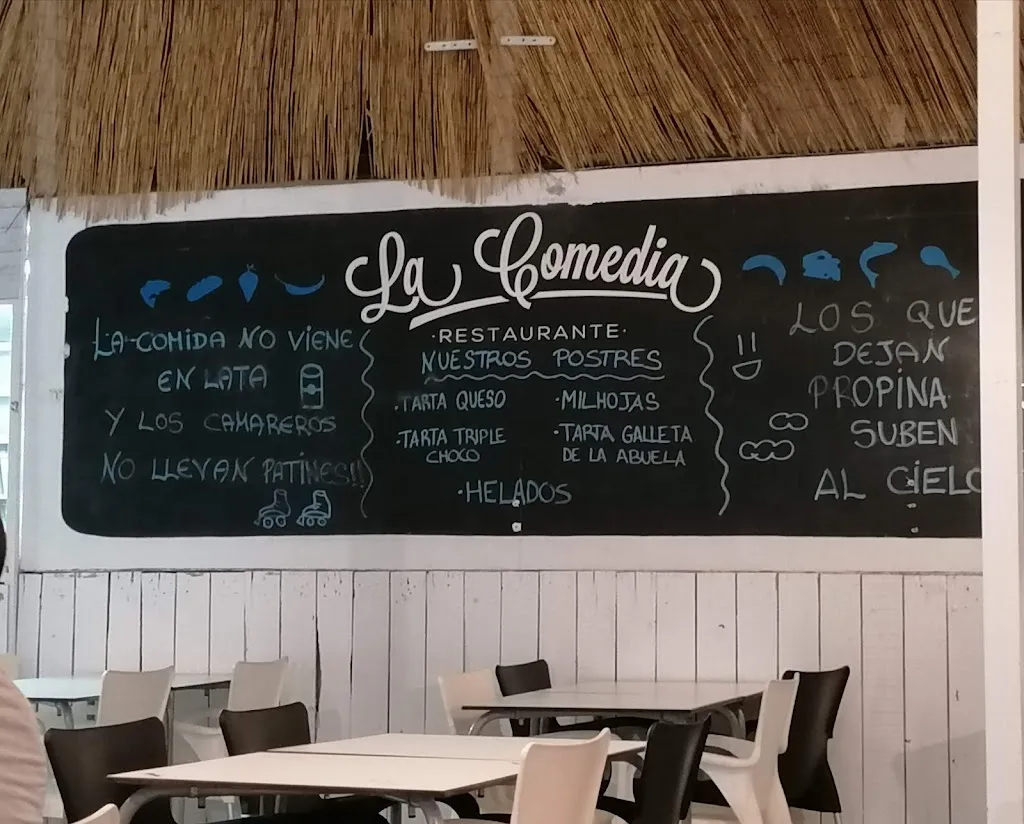 La Comedia
·RESTAURANTE·
LA COMIDA NO VIENE
EN LATA
Y LOS CAMAREROS
NO LLEVAN PATINES!!
NUESTROS POSTRES
·TARTA QUESO
·TARTA TRIPLE
CHOCO
·MILHOJAS
·TARTA GALLETA
DE LA ABUELA
·HELADOS
LOS QUE
DEJAN
PROPINA
SUBEN
AL CIELO